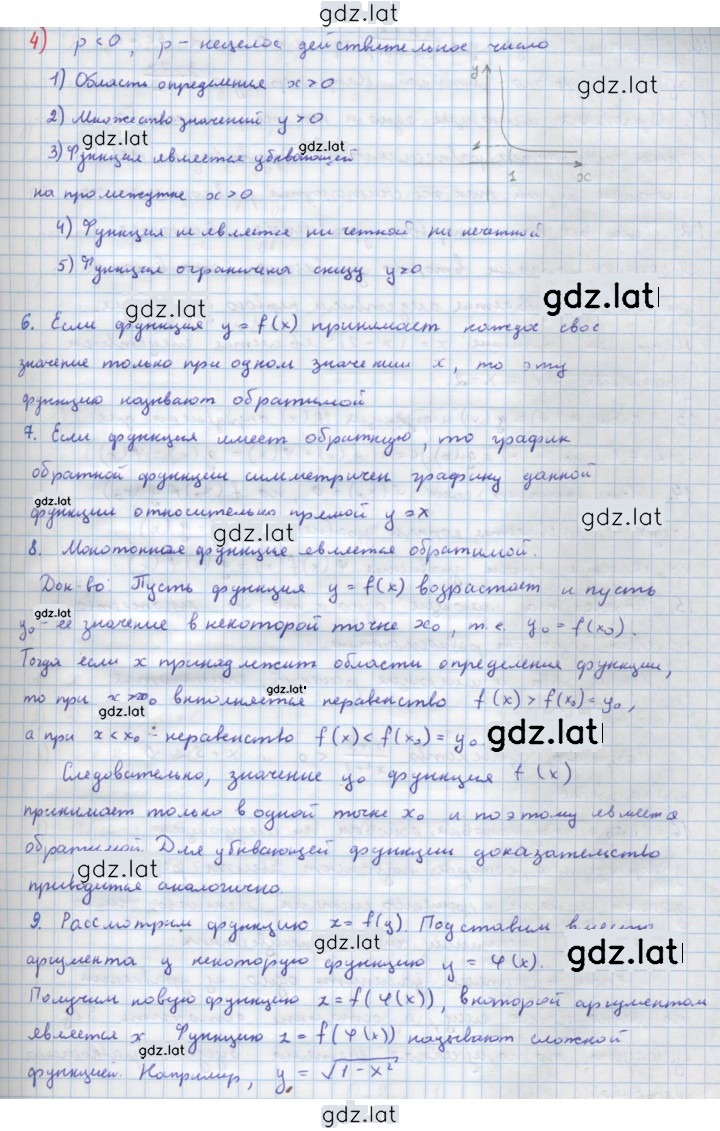 gdz.lat
4) p < 0, p – нецелое действительное число
y
1) Область определения x > 0
gdz.lat
2) Множество значений y > 0
gdz.lat
3) Функция является убывающей
1
1 x
на промежутке x > 0
4) Функция не является ни четной ни нечетной
5) Функция ограничена снизу y > 0
gdz.lat
gdz.lat
6. Если функция y = f(x) принимает каждое свое
значение только при одном значении x, то эту
функцию называют обратимой
7. Если функция имеет обратную, то график
обратной функции симметричен графику данной
gdz.lat
функции относительно прямой y = x
gdz.lat
gdz.lat
8. Монотонная функция является обратимой.
Док-во: Пусть функция y = f(x) возрастает и пусть
gdz.lat
y₀ – ее значение в некоторой точке x₀, т.е. y₀ = f(x₀).
Тогда если x принадлежит области определения функции,
gdz.lat
то при x > x₀ выполняется неравенство f(x) > f(x₀) = y₀,
gdz.lat
а при x < x₀ – неравенство f(x) < f(x₀) = y₀
gdz.lat
Следовательно, значение y₀ функция f(x)
принимает только в одной точке x₀ и поэтому является
обратимой. Для убывающей функции доказательство
gdz.lat
приводится аналогично.
9. Рассмотрим функцию z = f(y). Подставим вместо
gdz.lat
gdz.lat
аргумента y некоторую функцию y = φ(x).
Получим новую функцию z = f(φ(x)), в которой аргументом
является x. Функцию z = f(φ(x)) называют сложной
gdz.lat
функцией. Например, y = √(1 - x²)
gdz.lat